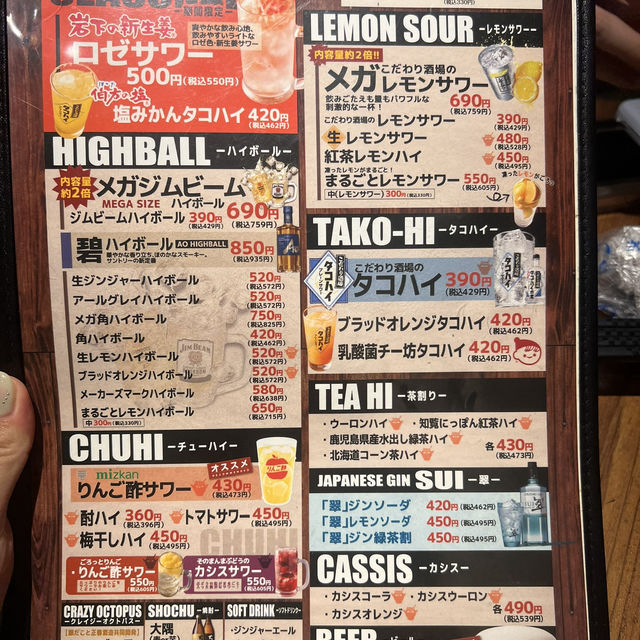 岩下の新生姜®
ロゼサワー
500円(税込550円)
爽やかな飲み心地、
飲みやすいライトな
ロゼ色・新生姜サワー
塩みかんタコハイ 420円
(税込462円)
HIGHBALL －ハイボール－
内容量
約2倍
メガジムビーム
MEGA SIZE ハイボール 690円
(税込759円)
ジムビームハイボール 390円
(税込429円)
碧 ハイボール AO HIGHBALL 850円
(税込935円)
生ジンジャーハイボール 520円
(税込572円)
アールグレイハイボール 520円
(税込572円)
メガ角ハイボール 750円
(税込825円)
角ハイボール 420円
(税込462円)
生レモンハイボール 520円
(税込572円)
ブラッドオレンジハイボール 520円
(税込572円)
メーカーズマークハイボール 580円
(税込638円)
まるごとレモンハイボール 650円
(税込715円)
中 300円(税込330円)
JIM BEAM
CHUHI －チューハイ－
オススメ
mizkan
りんご酢サワー 430円
(税込473円)
りんご酢
酎ハイ 360円
(税込396円)
トマトサワー 450円
(税込495円)
梅干しハイ 450円
(税込495円)
ごろっとりんご
・りんご酢サワー 550円
(税込605円)
そのまんまぶどうの
カシスサワー 550円
(税込605円)
CRAZY OCTOPUS
－クレイジーオクトパス－
【銀だこと正春酒造共同開発】
SHOCHU －焼酎－
大隅
SOFT DRINK －ソフトドリンク－
・ジンジャーエール
(税込330円)
LEMON SOUR －レモンサワー－
内容量約2倍!!
メガ こだわり酒場の
レモンサワー
飲みごたえも量もパワフルな
刺激的な一杯！
690円
(税込759円)
こだわり酒場のレモンサワー 390円
(税込429円)
生レモンサワー 480円
(税込528円)
紅茶レモンハイ 450円
(税込495円)
凍ったレモンがまるごと！
まるごとレモンサワー 550円
(税込605円)
中(レモンサワー) 300円(税込330円)
TAKO-HI －タコハイ－
こだわり酒場の
タコハイ 390円
(税込429円)
タコハイ
ブラッドオレンジタコハイ 420円
(税込462円)
乳酸菌チー坊タコハイ 420円
(税込462円)
TEA HI －茶割り－
・ウーロンハイ ・知覧にっぽん紅茶ハイ
・鹿児島県産水出し緑茶ハイ
・北海道コーン茶ハイ
各430円
(税込473円)
JAPANESE GIN SUI －翠－
「翠」ジンソーダ 420円(税込462円)
「翠」レモンサワー 450円(税込495円)
「翠」ジン緑茶割 450円(税込495円)
CASSIS －カシス－
・カシスコーラ ・カシスウーロン
・カシスオレンジ
各490円
(税込539円)
BEER －ビール－